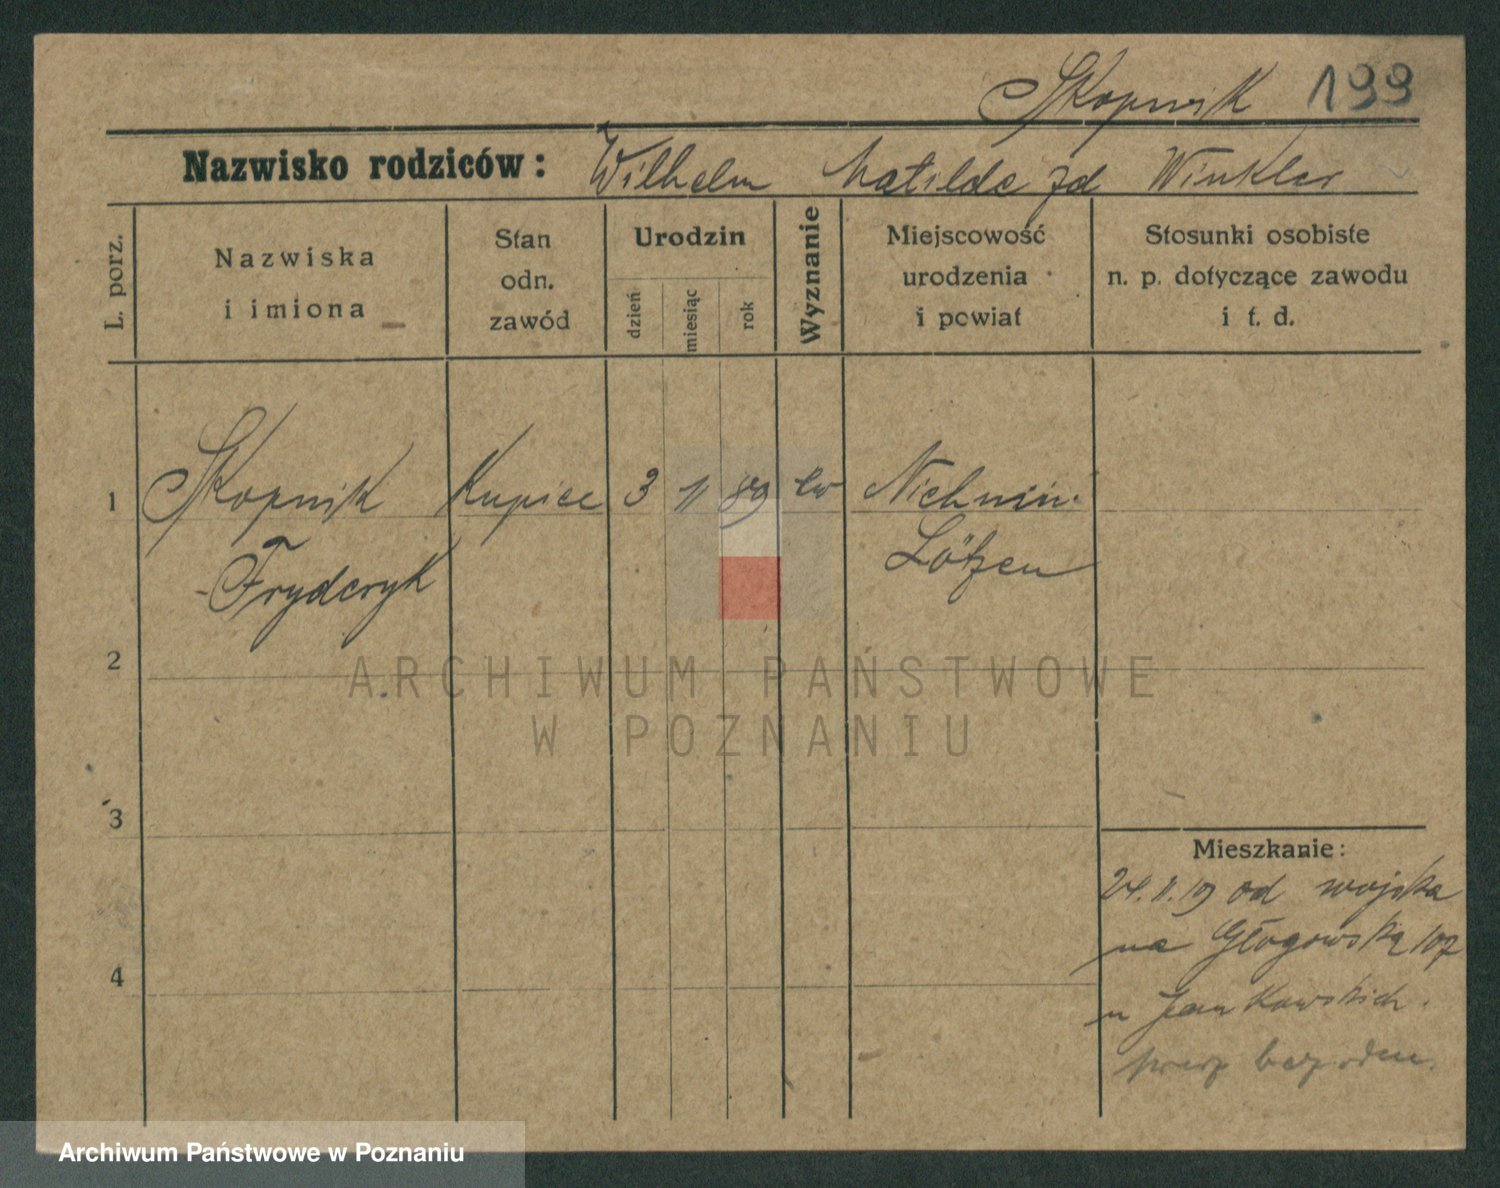 Skopnik 199
Nazwisko rodziców: Wilhelm Matilde zd Winkler
L. porz.
Nazwiska
i imiona
Stan
odn.
zawód
Urodzin
dzień
miesiąc
rok
Wyznanie
Miejscowość
urodzenia
i powiat
Stosunki osobiste
n. p. dotyczące zawodu
i t. d.
1 Skopnik Kupiec 3 11 89 ew
Fryderyk Lötzen
2
ARCHIWUM PAŃSTWOWE
W POZNANIU
3
Mieszkanie:
24.11.19 od wojska
na Głogowską 107
4
u Jankowskich.
Archiwum Państwowe w Poznaniu